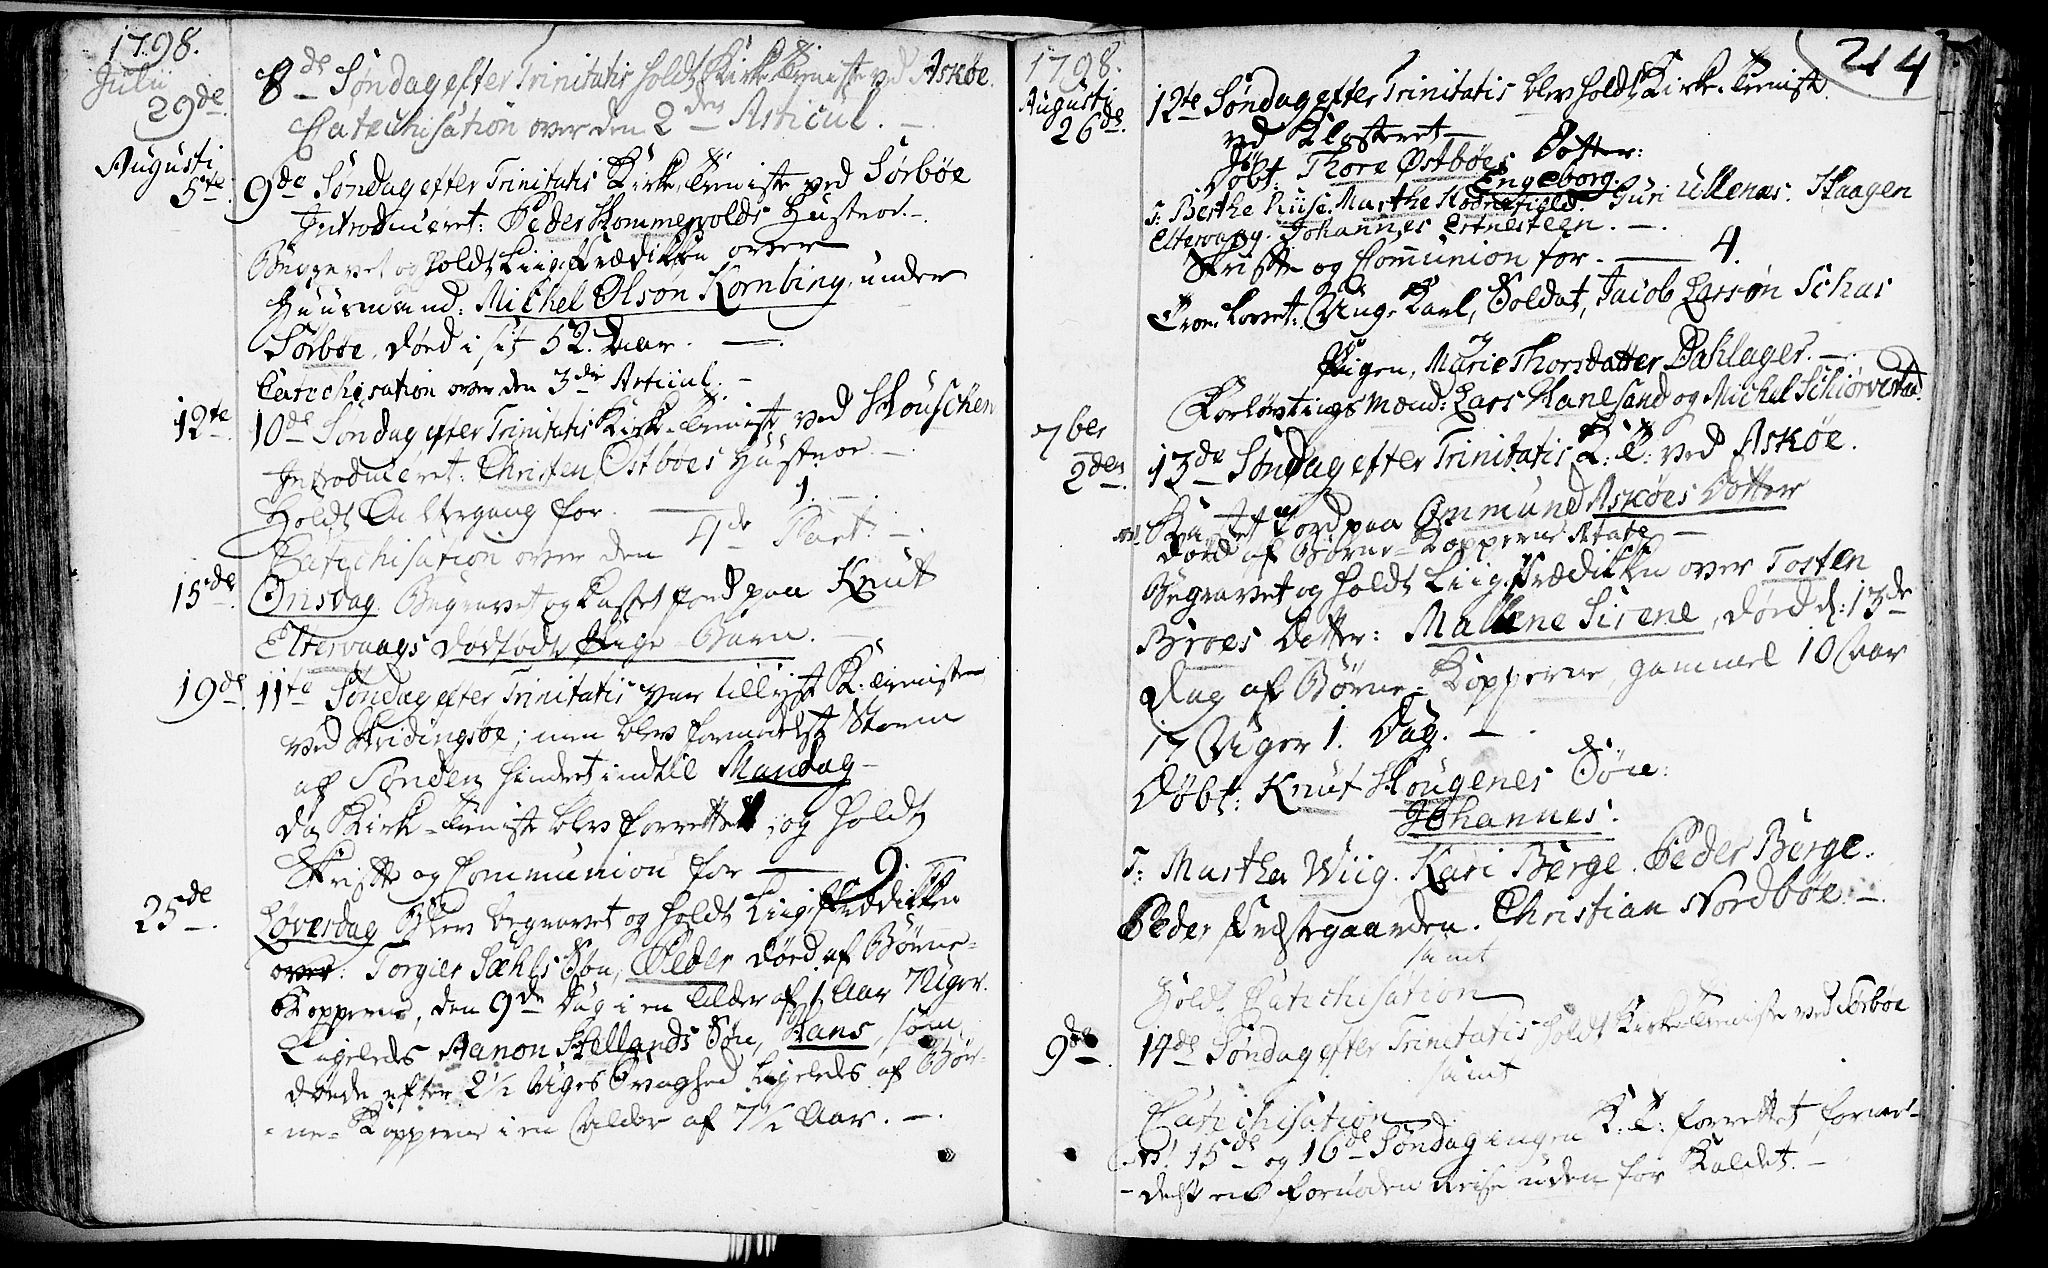 1798.
Julii
29de.
8de Søndag efter Trinitatis holdt Kirke-Tieniste ved Askøe.
Catechisation over den 2den Articul. -
Augusti
5te.
9de Søndag efter Trinitatis Kirke-Tieniste ved Sørbøe
Introduceret: Peder Hommersvolds Hustroe. -
Begravet og holdt Liig-Prædikken over
Huusmand: Michel Olson Kornbing, under
Sørbøe, død i sit 52. Aar. -
Catechisation over den 3die Articul. -
12te.
10de Søndag efter Trinitatis Kirke-Tieniste ved
Introduceret: Christen Østbøes Hustroe -
Holdt Altergang for. - 1. -
Catechisation over den 4de Part. -
15de.
Onsdag. Begravet og kastet Jord paa Knut
Eltervaags dødfødt Pige-Barn. -
19de.
11te Søndag efter Trinitatis var tillyst K: Tieniste
ved Hvidingsøe; men blev formedelst Storm
af Sønden hindret indtil Mandag -
da Kirke-Tieniste blev forrettet, og holdt
Skrifte og Communion for - 9. -
25de.
Løverdag Blev begravet og holdt Liig-Prædikken
over: Torgier Sæhls Søn, Peder død af Børne-
Kopperne, den 9de Dag i en Alder af 1. Aar 7 Uger.
Ligeledes Aanon Hellands Søn, Hans, som
døde efter 2½ Uges Svaghed ligeledes af Bør-
-ne-Kopperne i en Alder af 7½ Aar. -
1798.
Augusti
26de.
214
12te Søndag efter Trinitatis blev holdt Kirke-Tieniste
ved Klosteret -
Døbt: Thore Østbøes Dotter:
Engeborg.
T: Berthe Marthe Guri Ullenæs. Haagen
Eltervaag. Johannes
Skrifte og Communion for - 4.
Troe-lovet: Ung-Karl, Soldat, Jacob Larson Schar
og
Pigen, Marie Thorsdatter Dahlager. -
Forløvtings Mænd: Lars Hanesand og Michel
7ber
2den.
13de Søndag efter Trinitatis K: T: ved Askøe.
Kastet Jord paa Ommund Askøes Dotter
død af Børne-Kopperne -
Begravet og holdt Liig-Prædikken over Tosten
Broes Dotter: Mallene Sirene, død d: 13de
Dag af Børne-Kopperne, gammel 10 Aar
17 Uger 1. Dag. -
Døbt: Knut Hougenes Søn:
Johannes.
T: Martha Wiig. Kari Berge. Peder Berge.
Peder Præstegaarden. Christian Nordbøe. -
samt
Holdt Catechisation
9de.
14de Søndag efter Trinitatis holdt Kirke-Tieniste ved Sørbøe
samt
Catechisation
NB! 15de og 16de Søndag ingen K: T: forrettet, formel-
-delst en fornøden Reise uden for Kaldet. -